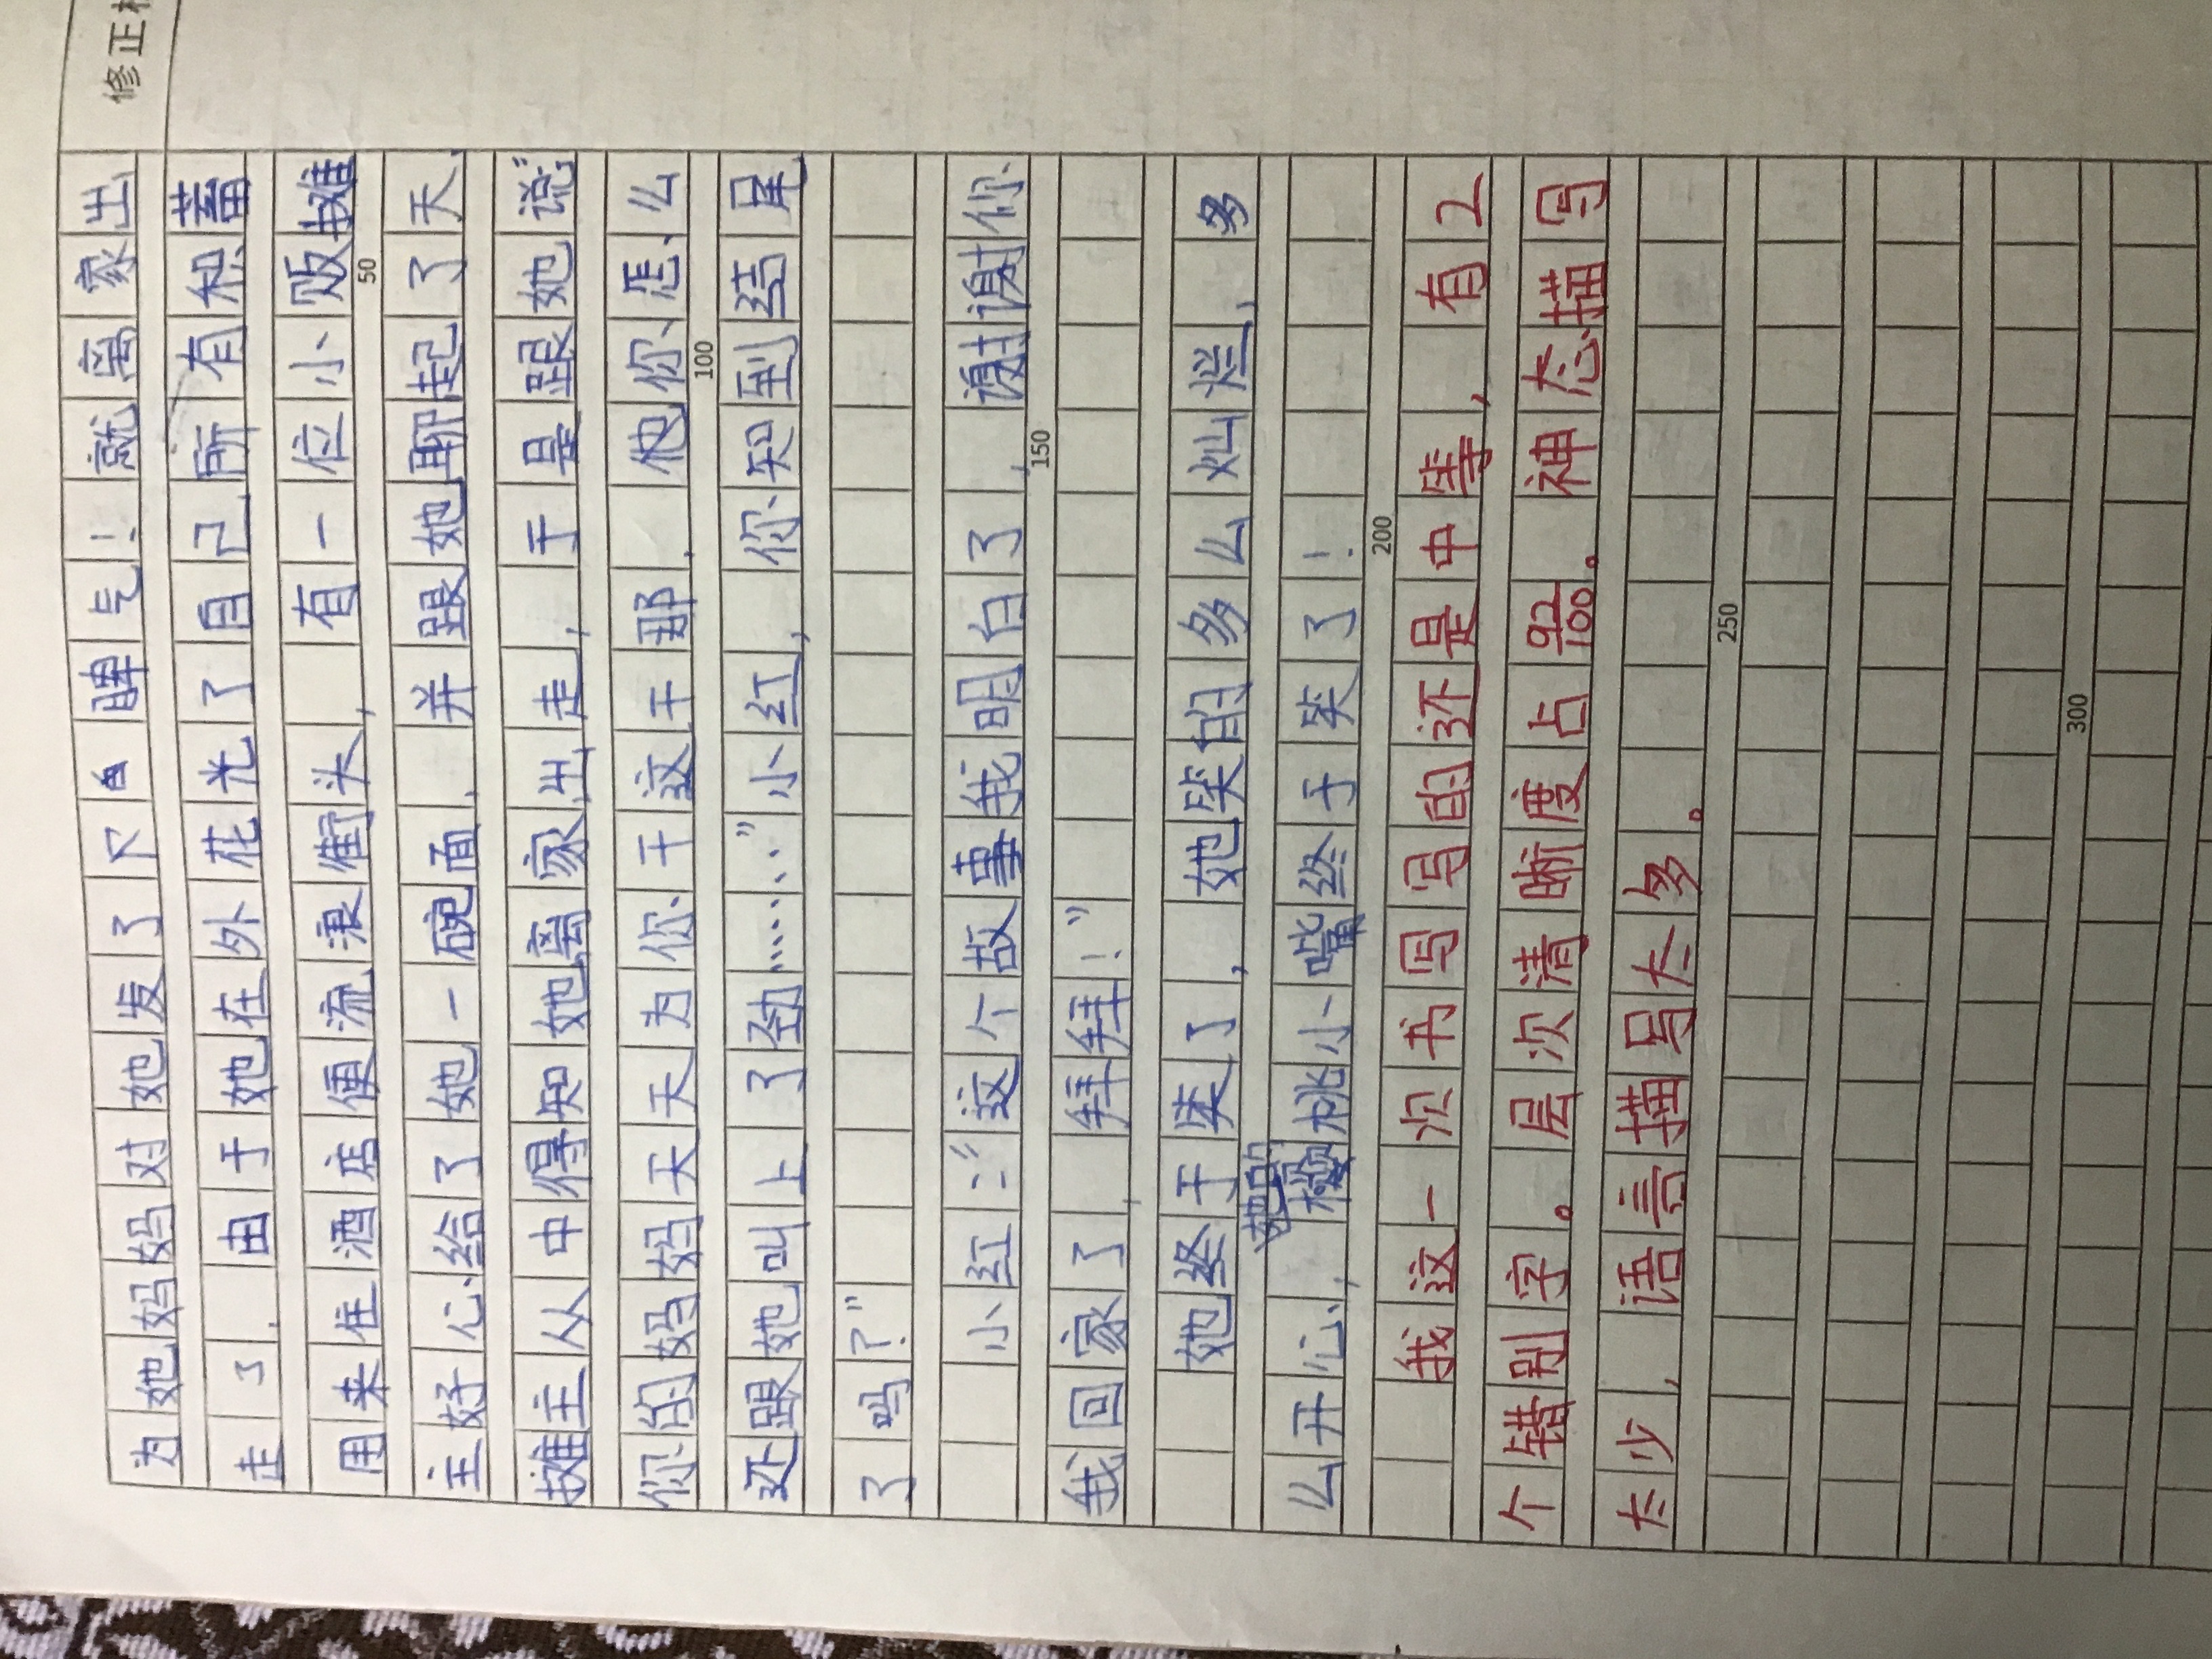 修正栏
为她妈妈对她发了个脾气！就离家出
走了．由于她在外花光了自己所有积蓄
用来住酒店便流浪街头，有一位小贩摊
主好心给了她一碗面．并跟她聊起了天．
摊主从中得知她离家出走，于是跟她说："
你的妈妈天天为你干这干那．他你怎么
还跟她叫上了劲……"小红，你知到结尾
了吗？"
小红："这个故事我明白了，谢谢你．
我回家了，拜拜！"
她终于笑了，她笑的多么灿烂，多
么开心，她的樱桃小嘴终于笑了！
我这一次书写写的还是中等，有2
个错别字。层次清晰度占92/100。神态描写
太少，语言描写太多。
50
100
150
200
250
300